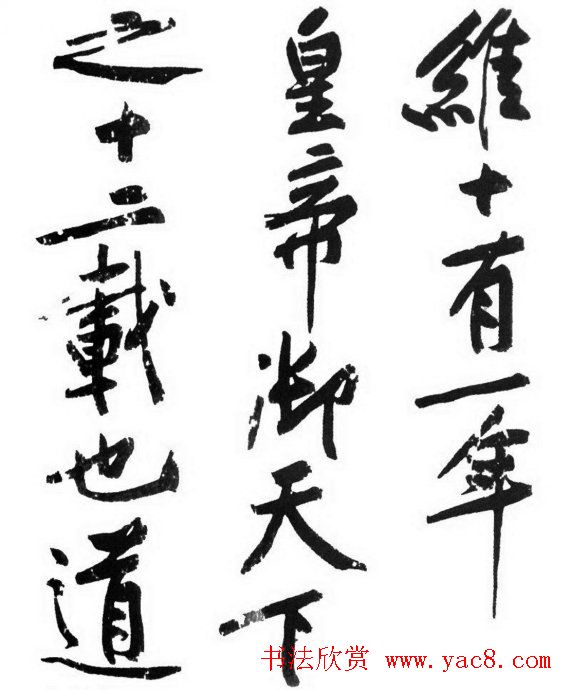 維十有一年
皇帝御天下
之十二載也道
书法欣赏 www.yac8.com